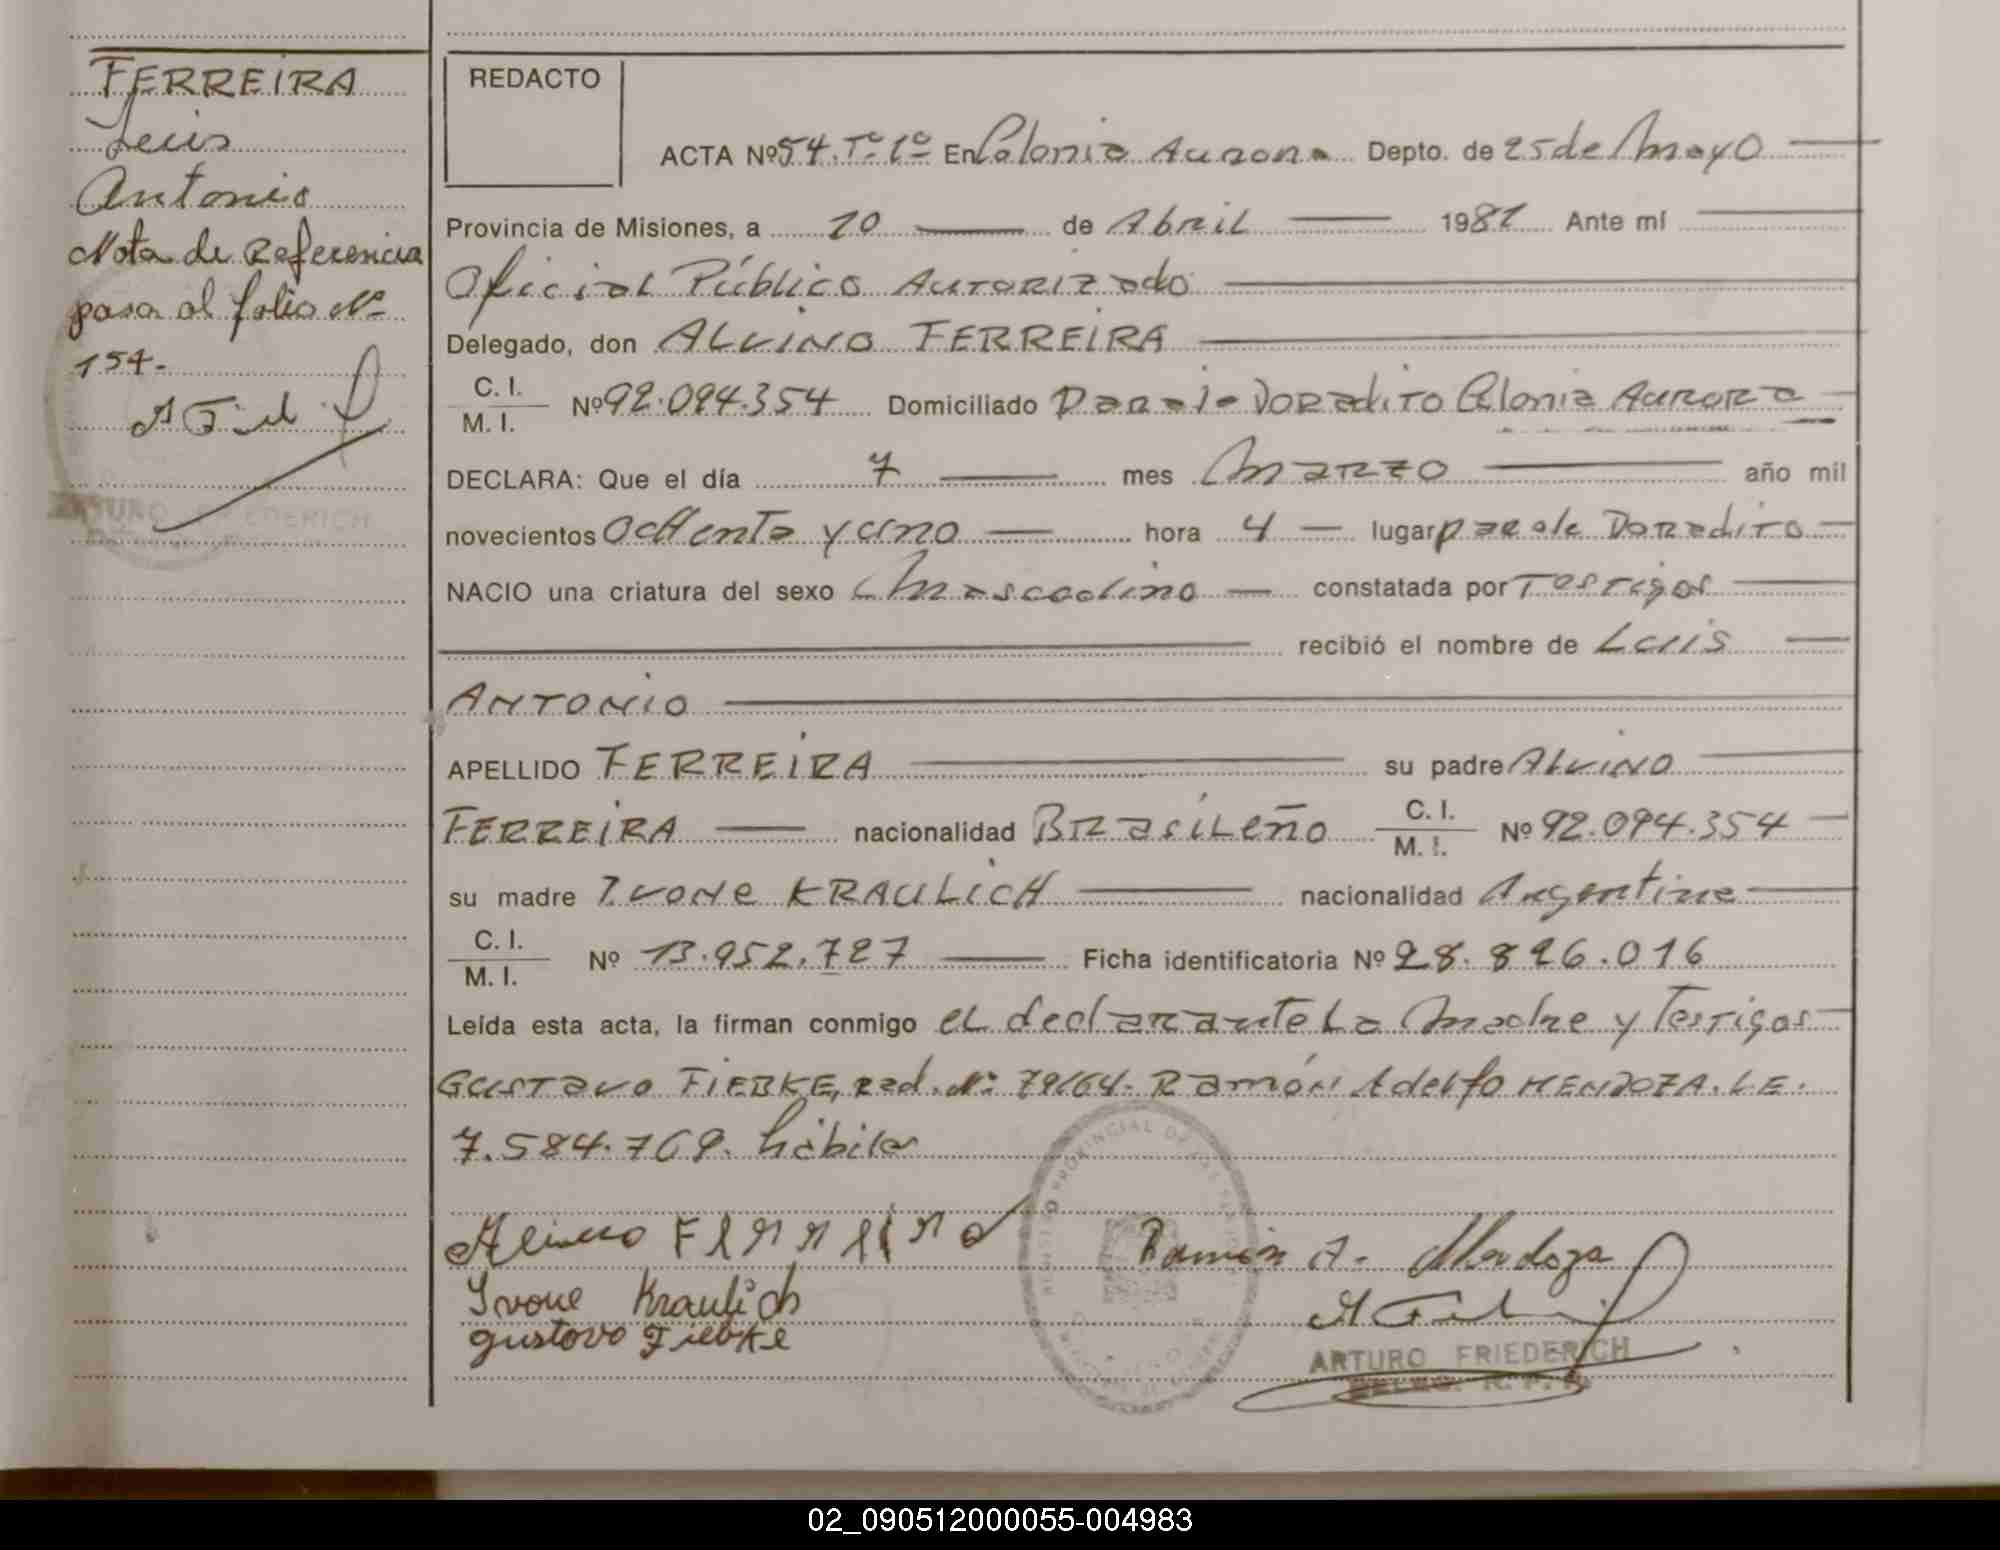 FERREIRA
Luis
Antonio
Nota de Referencia
pasa al folio Nº
154.
ARTURO FRIEDERICH
REDACTO
ACTA Nº 54. Tº 1º En Colonia Aurora Depto. de 25 de Mayo
Provincia de Misiones, a 20 de Abril 1981 Ante mí
Oficial Público Autorizado
Delegado, don ALVINO FERREIRA
C. I.
M. I. Nº 92.094.354 Domiciliado Doradito Colonia Aurora
DECLARA: Que el día 7 mes Marzo año mil
novecientos Ochenta y uno hora 4 lugar Doradito
NACIO una criatura del sexo Mascculino constatada por Testigos
recibió el nombre de Luis
ANTONIO
APELLIDO FERREIRA su padre ALVINO
FERREIRA nacionalidad Brasileño C. I.
M. I. Nº 92.094.354
su madre Ivone KRAULICH nacionalidad Argentina
C. I.
M. I. Nº 13.952.727 Ficha identificatoria Nº 28.826.016
Leída esta acta, la firman conmigo el declarante La Madre y Testigos
Gustavo FIEBKE, Ced. Nº 79164. Ramón Adelfo MENDOZA. L.E.
7.584.769. hábiles
Ferreira
Ramon A. Mendoza
Ivone Kraulich
gustavo Fiebke
ARTURO FRIEDERICH
DELEG. R. P. P.
02_090512000055-004983